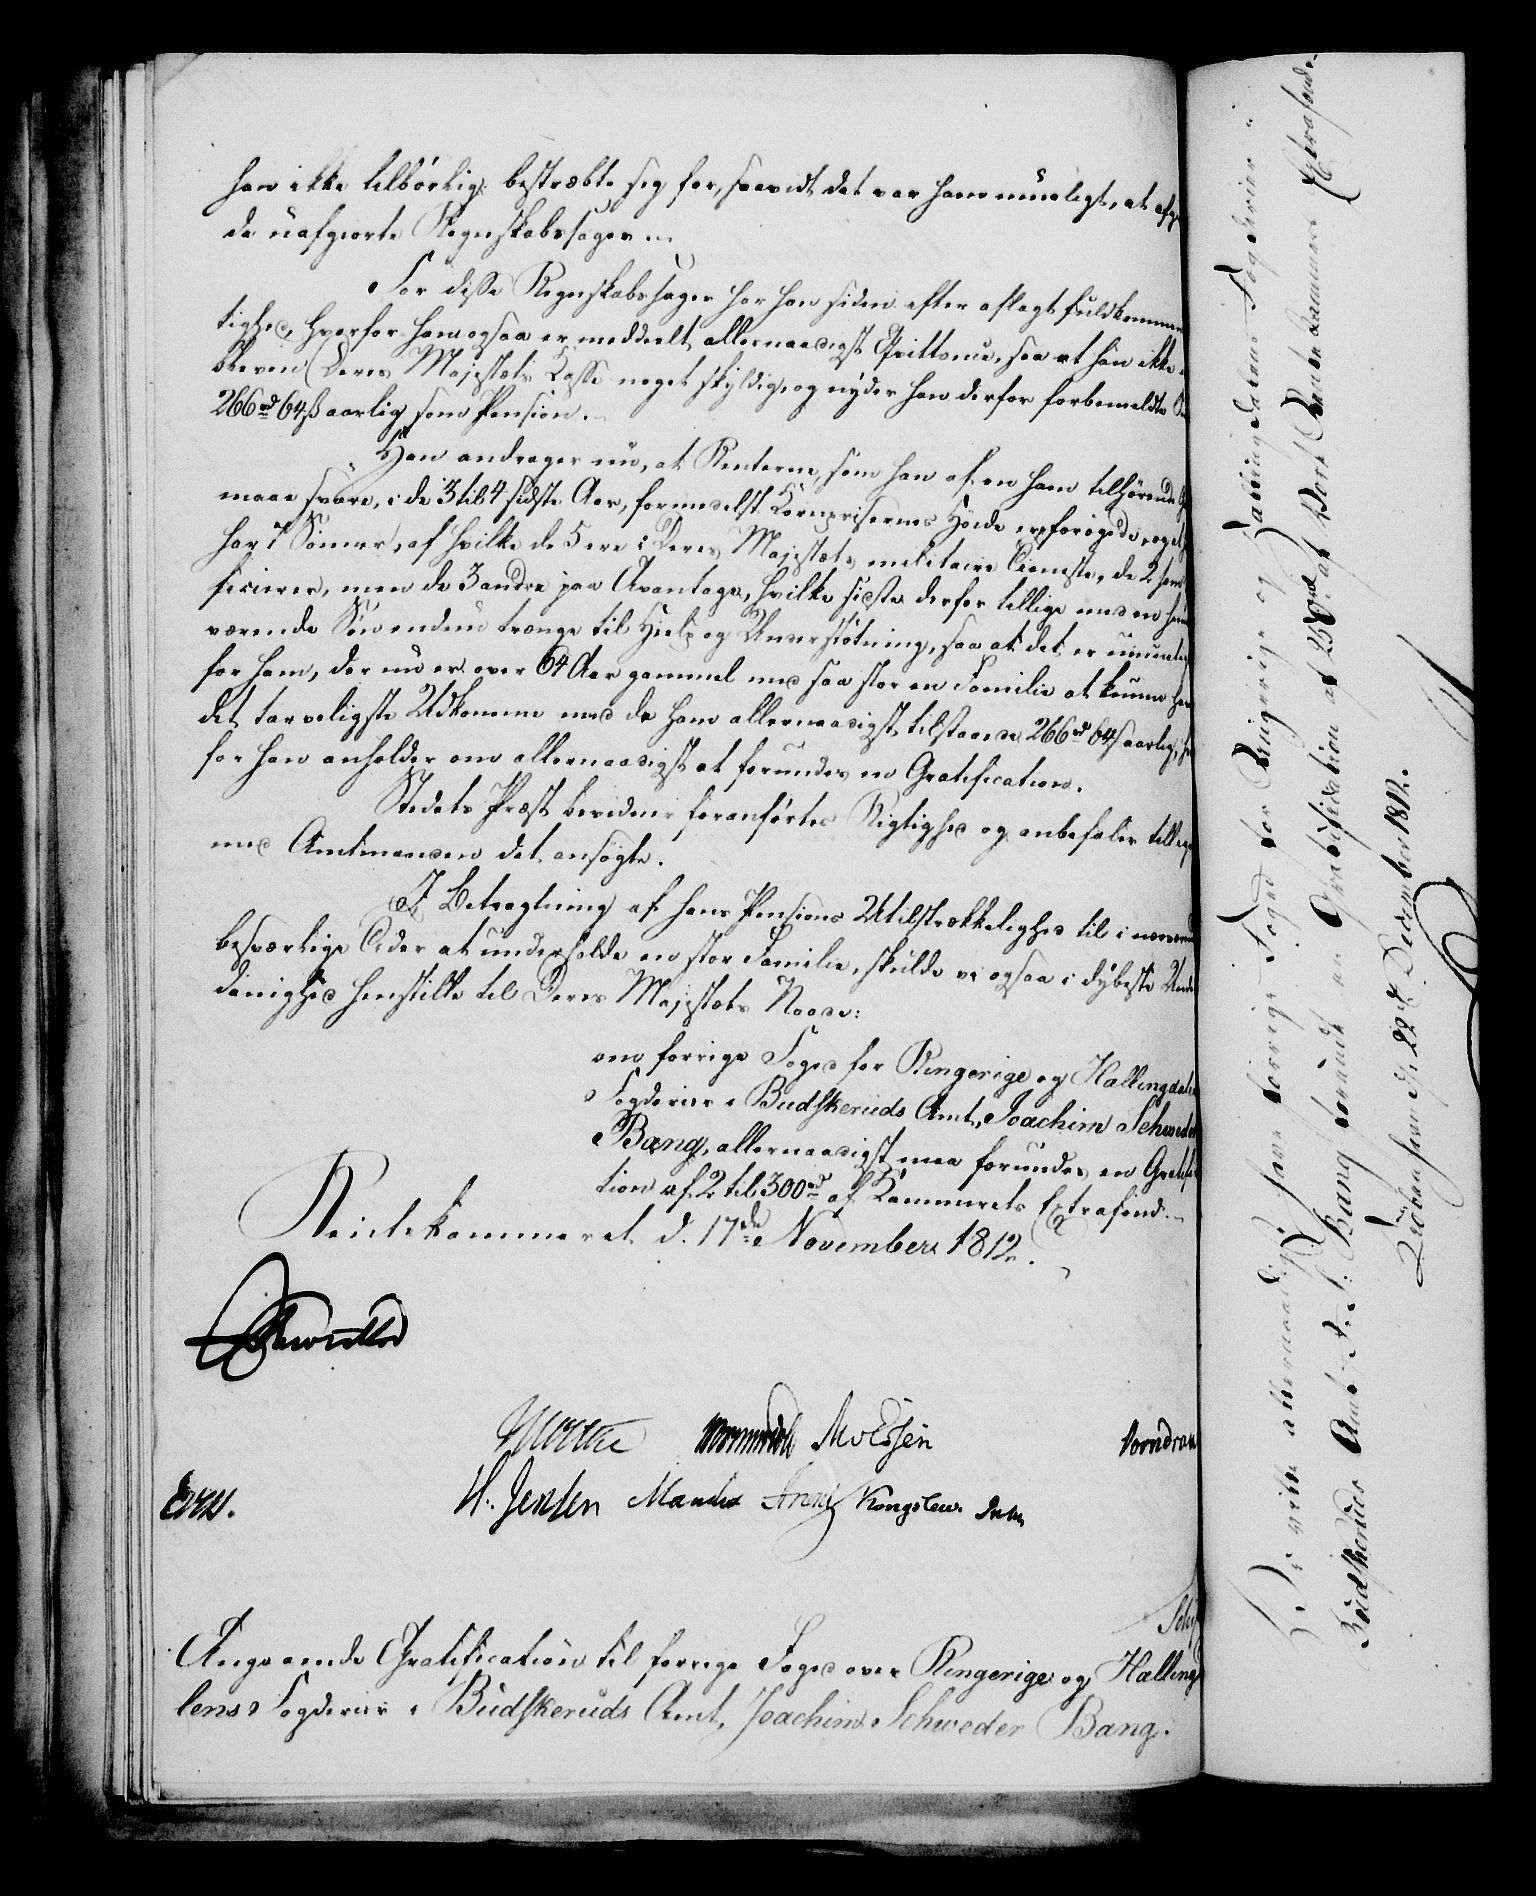 han ikke tilbørlig bestræbte sig for, saavidt det var ham mueligt, at
de uafgiorte Regnskabssager.
For disse Regnskabssager har han siden efter aflagt fuldkommen
tighed, hvorfor ham ogsaa er meddeelt allernaadigst Qvittance, saa at han ikke
bleven Deres Majestæts Kasse noget skyldig, og nyder han derfor forbemeldte
266 rd 64 ß aarlig som Pension.
Han andrager nu, at Renterne, som han af en ham tilhørende
maae svare, i de 3 til 4 sidste Aar, formedelst Kornprisernes Høide er forøgede, og at
har 7 Sønner, af hvilke de 5 ere i Deres Majestæts militaire Tieneste, de 2 som
ficierer, men de 3 andre paa Avantage, hvilke sidste derfor tillige med en
værende Søn endnu trænge til Hielp og Understøtning, saa at det er umueligt
for ham, der nu er over 64 Aar gammel med saa stor en Familie at kunne have
det tarveligste Udkomme med de ham allernaadigst tilstaaede 266 rd 64 ß aarlig,
for han anholder om allernaadigst at forundes en Gratification.
Stedets Præst bevidner foranførtes Rigtighed og anbefaler tillige
med Amtmanden det ansøgte.
I Betragtning af hans Pensions Utilstrækkelighed til i nærværende
besværlige Tider at underholde en stor Familie, skulde vi ogsaa i dybeste Under
danighed henstille til Deres Majestæts Naade:
om forrige Foged for Ringerige og Hallingdalens
Fogderier i Budskeruds Amt, Joachim Schweder
Bang, allernaadigst maa forundes en Gratifica
tion af 2 til 300 rd af Kammerets Extrafond.
Rentekammeret d. 17de November 1812.
H. Jensen
Angaaende Gratification til forrige Foged over Ringerige og Halling
lens Fogderier i Budskeruds Amt, Joachim Schweder Bang.
Vi ville allernaadigst have forrige Foged for Ringerige og Hallingdalens Fogderier i
Budskeruds Amt J. S. Bang forundt en Gratification af 250 rd af Vort Rentekammers Extrafond.
Kiøbenhavn d. 22de December 1812.